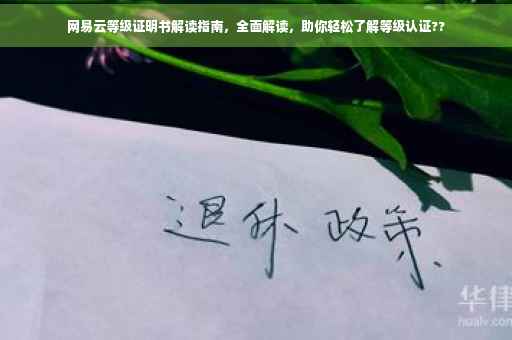 网易云等级证明书解读指南，全面解读，助你轻松了解等级认证??
退休 政策
华律
hualv.com